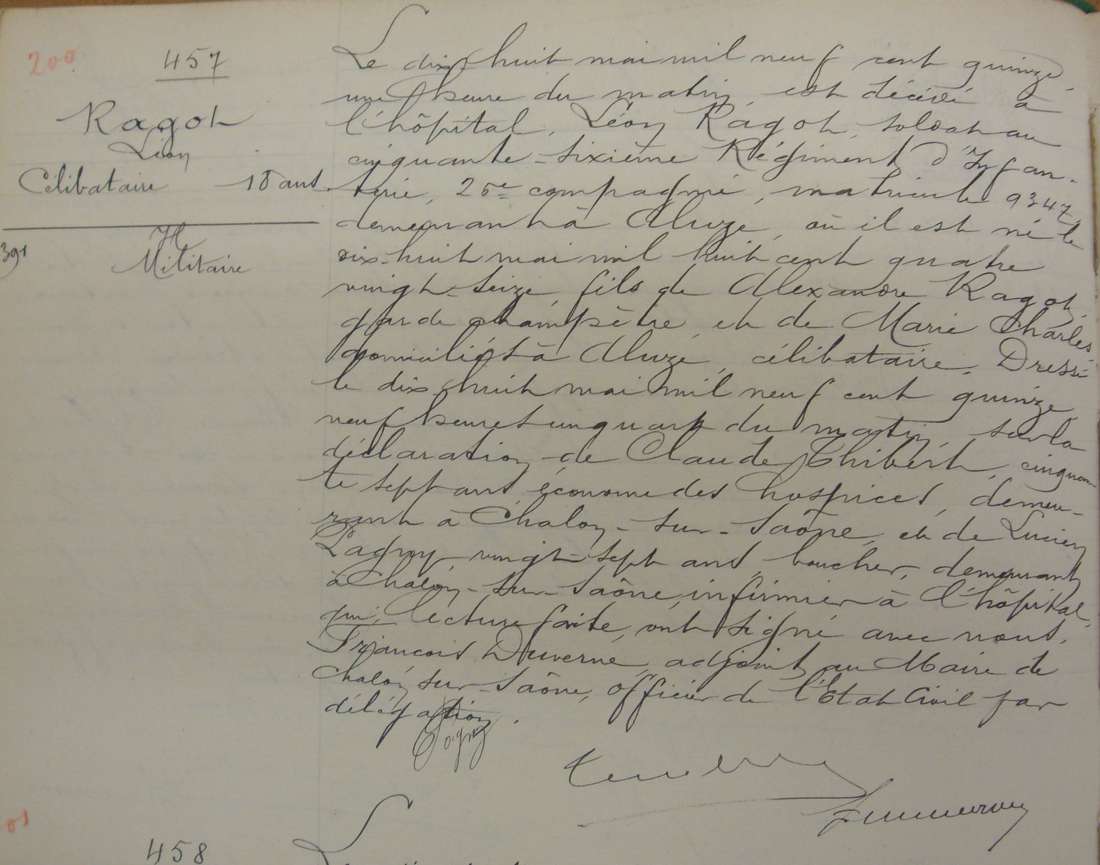 200
457
Ragot
Léon
Célibataire 18 ans
391
Militaire
Le dix huit mai mil neuf cent quinze,
une heure du matin, est décédé à
l'hôpital, Léon Ragot, soldat au
cinquante-sixième Régiment d'Infan-
terie, 25e compagnie, matricule 9347,
demeurant à Aluze, où il est né le
dix-huit mai mil huit cent quatre
vingt-seize, fils de Alexandre Ragot,
garde champêtre, et de Marie Charles,
domiciliés à Aluze, célibataire. Dressé
le dix huit mai mil neuf cent quinze,
neuf heures un quart du matin, sur la
déclaration de Claude Thibert, cinquan-
te sept ans, économe des hospices, demeu-
rant à Chalon-sur-Saône, et de Lucien
Lagny, vingt-sept ans, boucher, demeurant
à Chalon-sur-Saône, infirmier à l'hôpital,
qui, lecture faite, ont signé avec nous,
François Duverne, adjoint au Maire de
Chalon sur-Saône, officier de l'Etat Civil par
délégation.
458